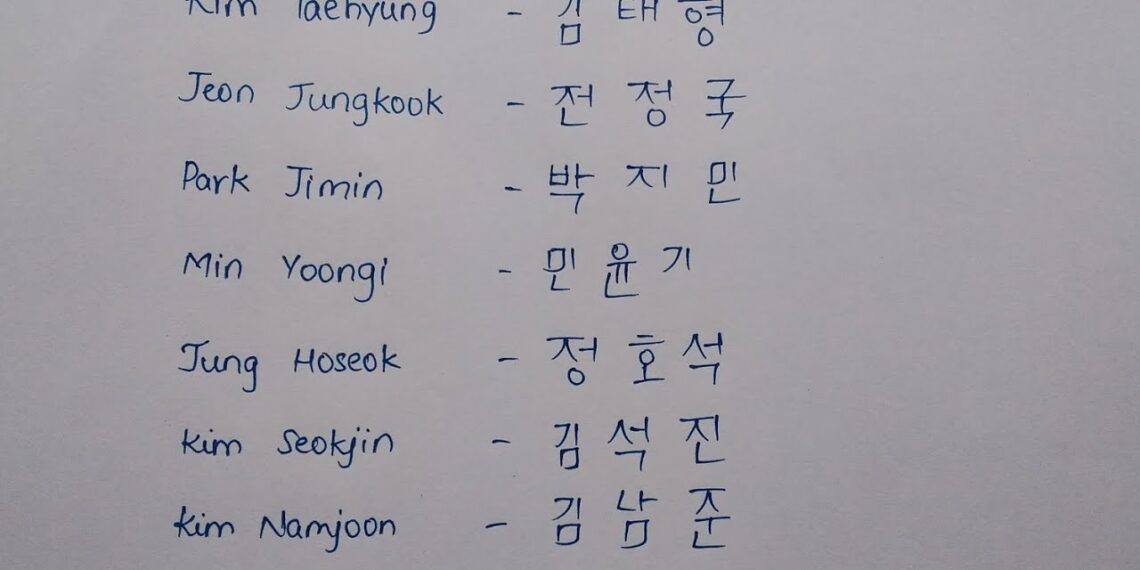 Kim Taehyung - 김 태 형
Jeon Jungkook - 전 정 국
Park Jimin - 박 지 민
Min Yoongi - 민 윤 기
Jung Hoseok - 정 호 석
Kim Seokjin - 김 석 진
Kim Namjoon - 김 남 준